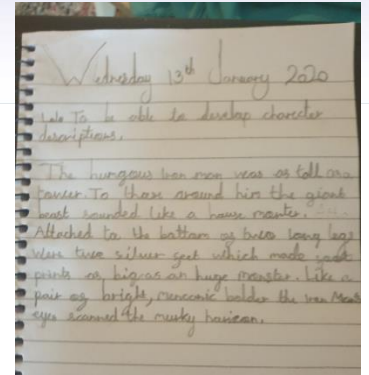 Wednesday 13th January 2020
To be able to develop character
descriptions.
The hungous Iron man was as tall as a
tower. To those around him the giant
beast sounded like a house
Attached to the bottom of two long legs
were two silver feet which made
prints as big as an huge monster. Like a
pair of bright, the Iron Mans
eyes scanned the murky horizon.